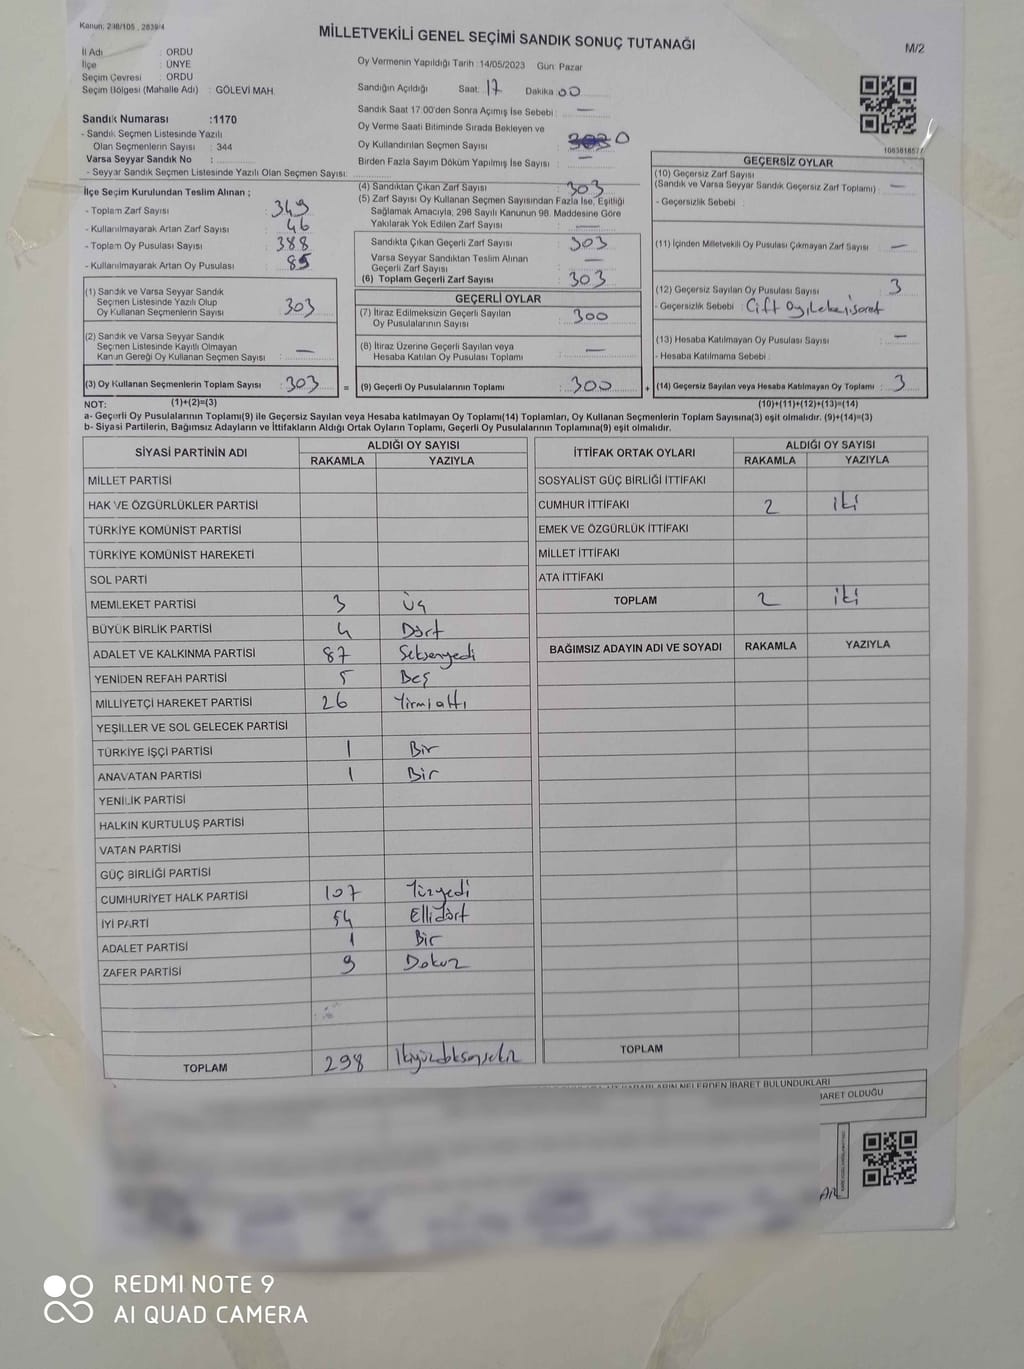 Kanun: 298/105 , 2839/4
MİLLETVEKİLİ GENEL SEÇİMİ SANDIK SONUÇ TUTANAĞI
M/2
İl Adı : ORDU
İlçe : ÜNYE
Seçim Çevresi : ORDU
Seçim Bölgesi (Mahalle Adı) : GÖLEVİ MAH.
Oy Vermenin Yapıldığı Tarih :14/05/2023 Gün: Pazar
Sandığın Açıldığı Saat: 17 Dakika 00
Sandık Saat 17.00'den Sonra Açımış İse Sebebi : —
Oy Verme Saati Bitiminde Sırada Bekleyen ve
Oy Kullandırılan Seçmen Sayısı 0
Birden Fazla Sayım Döküm Yapılmış İse Sayısı : —
Sandık Numarası :1170
- Sandık Seçmen Listesinde Yazılı
Olan Seçmenlerin Sayısı : 344
Varsa Seyyar Sandık No :
- Seyyar Sandık Seçmen Listesinde Yazılı Olan Seçmen Sayısı:
İlçe Seçim Kurulundan Teslim Alınan ;
- Toplam Zarf Sayısı : 349
- Kullanılmayarak Artan Zarf Sayısı : 46
- Toplam Oy Pusulası Sayısı : 388
- Kullanılmayarak Artan Oy Pusulası : 85
(1) Sandık ve Varsa Seyyar Sandık
Seçmen Listesinde Yazılı Olup
Oy Kullanan Seçmenlerin Sayısı : 303
(2) Sandık ve Varsa Seyyar Sandık
Seçmen Listesinde Kayıtlı Olmayan
Kanun Gereği Oy Kullanan Seçmen Sayısı : —
(3) Oy Kullanan Seçmenlerin Toplam Sayısı : 303
(1)+(2)=(3)
(4) Sandıktan Çıkan Zarf Sayısı : 303
(5) Zarf Sayısı Oy Kullanan Seçmen Sayısından Fazla İse, Eşitliği
Sağlamak Amacıyla, 298 Sayılı Kanunun 98. Maddesine Göre
Yakılarak Yok Edilen Zarf Sayısı : —
Sandıkta Çıkan Geçerli Zarf Sayısı : 303
Varsa Seyyar Sandıktan Teslim Alınan
Geçerli Zarf Sayısı : —
(6) Toplam Geçerli Zarf Sayısı : 303
GEÇERLİ OYLAR
(7) İtiraz Edilmeksizin Geçerli Sayılan
Oy Pusulalarının Sayısı : 300
(8) İtiraz Üzerine Geçerli Sayılan veya
Hesaba Katılan Oy Pusulası Toplamı : —
= (9) Geçerli Oy Pusulalarının Toplamı : 300 +
GEÇERSİZ OYLAR
(10) Geçersiz Zarf Sayısı
(Sandık ve Varsa Seyyar Sandık Geçersiz Zarf Toplamı) : —
- Geçersizlik Sebebi :
(11) İçinden Milletvekili Oy Pusulası Çıkmayan Zarf Sayısı : —
(12) Geçersiz Sayılan Oy Pusulası Sayısı : 3
- Geçersizlik Sebebi : Çift Oy
(13) Hesaba Katılmayan Oy Pusulası Sayısı : —
- Hesaba Katılmama Sebebi :
(14) Geçersiz Sayılan veya Hesaba Katılmayan Oy Toplamı : 3
(10)+(11)+(12)+(13)=(14)
NOT:
a- Geçerli Oy Pusulalarının Toplamı(9) ile Geçersiz Sayılan veya Hesaba katılmayan Oy Toplamı(14) Toplamları, Oy Kullanan Seçmenlerin Toplam Sayısına(3) eşit olmalıdır. (9)+(14)=(3)
b- Siyasi Partilerin, Bağımsız Adayların ve İttifakların Aldığı Ortak Oyların Toplamı, Geçerli Oy Pusulalarının Toplamına(9) eşit olmalıdır.
SİYASİ PARTİNİN ADI
ALDIĞI OY SAYISI
RAKAMLA YAZIYLA
MİLLET PARTİSİ
HAK VE ÖZGÜRLÜKLER PARTİSİ
TÜRKİYE KOMÜNİST PARTİSİ
TÜRKİYE KOMÜNİST HAREKETİ
SOL PARTİ
MEMLEKET PARTİSİ 3 Üç
BÜYÜK BİRLİK PARTİSİ 4 Dört
ADALET VE KALKINMA PARTİSİ 87 Seksenyedi
YENİDEN REFAH PARTİSİ 5 Beş
MİLLİYETÇİ HAREKET PARTİSİ 26 Yirmialtı
YEŞİLLER VE SOL GELECEK PARTİSİ
TÜRKİYE İŞÇİ PARTİSİ 1 Bir
ANAVATAN PARTİSİ 1 Bir
YENİLİK PARTİSİ
HALKIN KURTULUŞ PARTİSİ
VATAN PARTİSİ
GÜÇ BİRLİĞİ PARTİSİ
CUMHURİYET HALK PARTİSİ 107 Yüzyedi
İYİ PARTİ 54 Ellidört
ADALET PARTİSİ 1 Bir
ZAFER PARTİSİ 9 Dokuz
TOPLAM 298 İkiyüzdoksansekiz
İTTİFAK ORTAK OYLARI
ALDIĞI OY SAYISI
RAKAMLA YAZIYLA
SOSYALİST GÜÇ BİRLİĞİ İTTİFAKI
CUMHUR İTTİFAKI 2 iki
EMEK VE ÖZGÜRLÜK İTTİFAKI
MİLLET İTTİFAKI
ATA İTTİFAKI
TOPLAM 2 iki
BAĞIMSIZ ADAYIN ADI VE SOYADI RAKAMLA YAZIYLA
TOPLAM
NELERDEN İBARET BULUNDUKLARI
İBARET OLDUĞU
REDMI NOTE 9
AI QUAD CAMERA